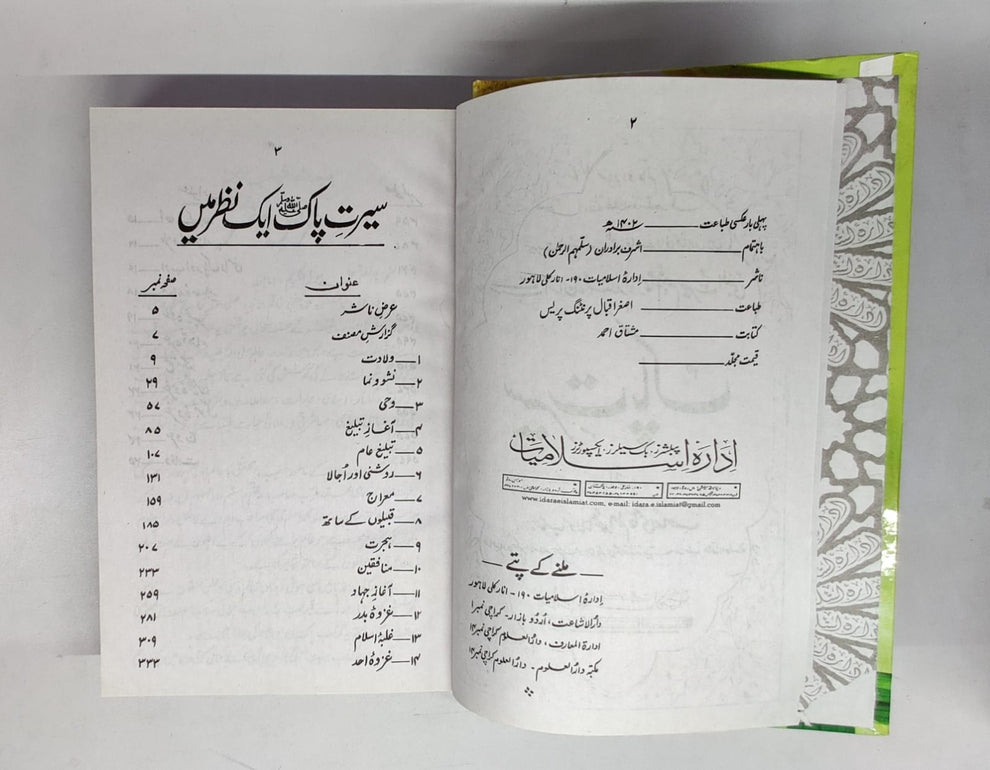 ۲
پہلی بار عکسی طباعت ــــــ ۱۴۰۲ھ
باہتمام ــــــ اشرف برادران (سلمہم الرحمٰن)
ناشر ــــــ ادارۂ اسلامیات ۱۹۰- انارکلی لاہور
طباعت ــــــ اصغر اقبال پرنٹنگ پریس
کتابت ــــــ مشتاق احمد
قیمت مجلد ــــــ
ادارۂ اسلامیات پبلشرز، بک سیلرز، ایکسپورٹرز
www.idaraeislamiat.com, e-mail: idara.e.islamiat@gmail.com
ــ ملنے کے پتے ــ
ادارۂ اسلامیات ۱۹۰- انارکلی لاہور
دارالاشاعت، اُردو بازار- کراچی نمبر۱
ادارۃ المعارف، دارالعلوم کراچی نمبر۱۴
مکتبہ دارالعلوم- دارالعلوم کراچی نمبر۱۴
۳
سیرتِ پاک ﷺ ایک نظر میں
عنوان صفحہ نمبر
عرضِ ناشر ۵
گزارشِ مصنف ۷
۱ــ ولادت ۹
۲ــ نشوونما ۲۹
۳ــ وحی ۵۷
۴ــ آغازِ تبلیغ ۸۵
۵ــ تبلیغِ عام ۱۰۷
۶ــ روشنی اور اُجالا ۱۳۱
۷ــ معراج ۱۵۹
۸ــ قبیلوں کے ساتھ ۱۸۵
۹ــ ہجرت ۲۰۷
۱۰ــ منافقین ۲۳۳
۱۱ــ آغازِ جہاد ۲۵۹
۱۲ــ غزوۂ بدر ۲۸۱
۱۳ــ غلبۂ اسلام ۳۰۹
۱۴ــ غزوۂ احد ۳۳۳